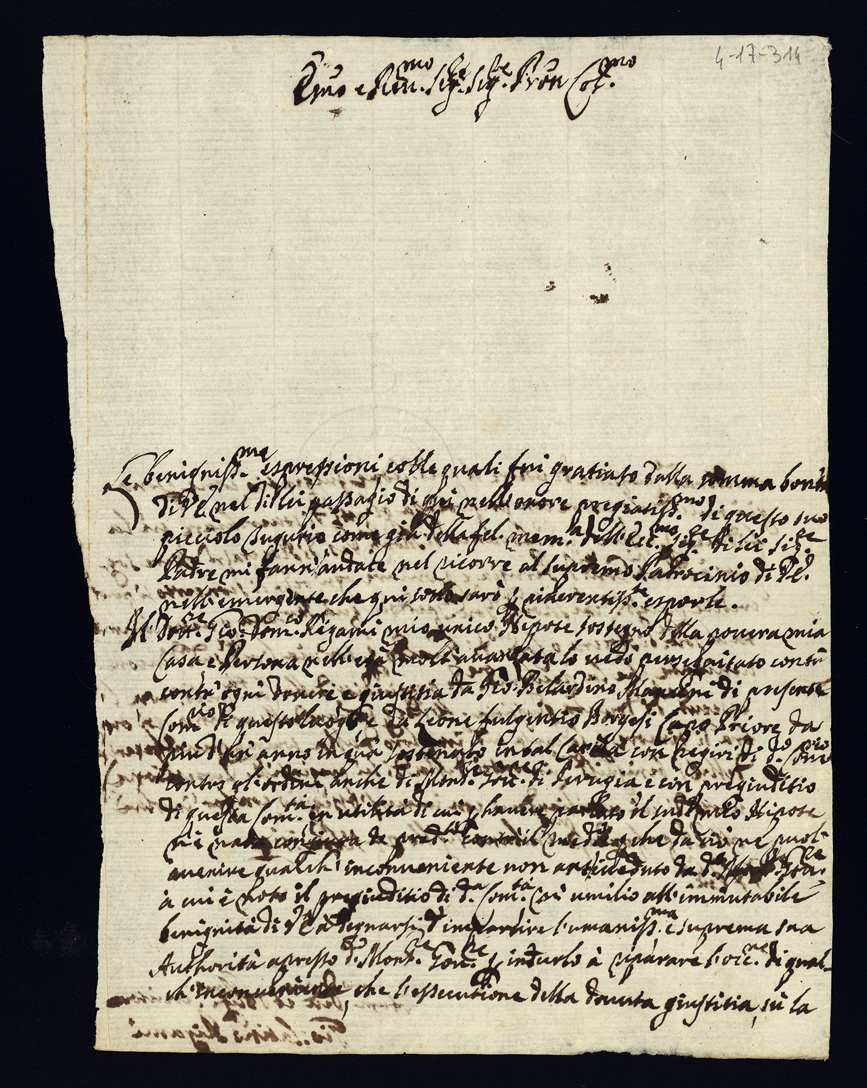 4-17-314
Em̃o e Reu.mo Sig.r Sig.re Pr̃on Col.mo
Le benigniss.me espressioni colle quali fui gratiato dalla somma bontà
di V.E. nel di lei passagio di qui nell'onore pregiatiss.mo di questo suo
piccolo tugurio come già della fel. mem.a dell'Ecc.mo Sig.re di lei Sig.re
Padre mi fann'andate nel ricorre al supremo Patrocinio di V.E.
nell'emergente che qui sotto sarò p riuerentiss.te esporle.
Il Dott.re Gio: Dom.co Rigami mio unico Nipote sostegno della pouera mia
Casa e Persona nell'età molt'auanzata lo uedo perseguitato contr
contr'ogni douere e giustitia da Gio: Belardino di presente
Com.rio di questo luogo e da Leone fulgintio Borgesi Capo Priore da
più d'un anno in quà sostenuto in tal Carica con regiri di d.o Com.rio
contro gl'ordini anche di Mons.re Gou.re di Perugia e con pregiuditio
di questa Com.tà in utilità di cui p hauere parlato il sud.o Nipote
che da ciò ne puol'
auenire qualch'inconueniente non antiueduto da d.o Mons.re Gou.re
à cui è noto il pregiuditio di d.a Com.tà umilio all'immutabile
benignità di V.E. a degnarsi d'impartire l'umaniss.ma e suprema sua
Authorità apresso d.o Mons.re Gou.re p indurlo à riparare l'occ.ne di qual-
ch'inconueniente, che l'essecutione della douuta giustitia, sù la